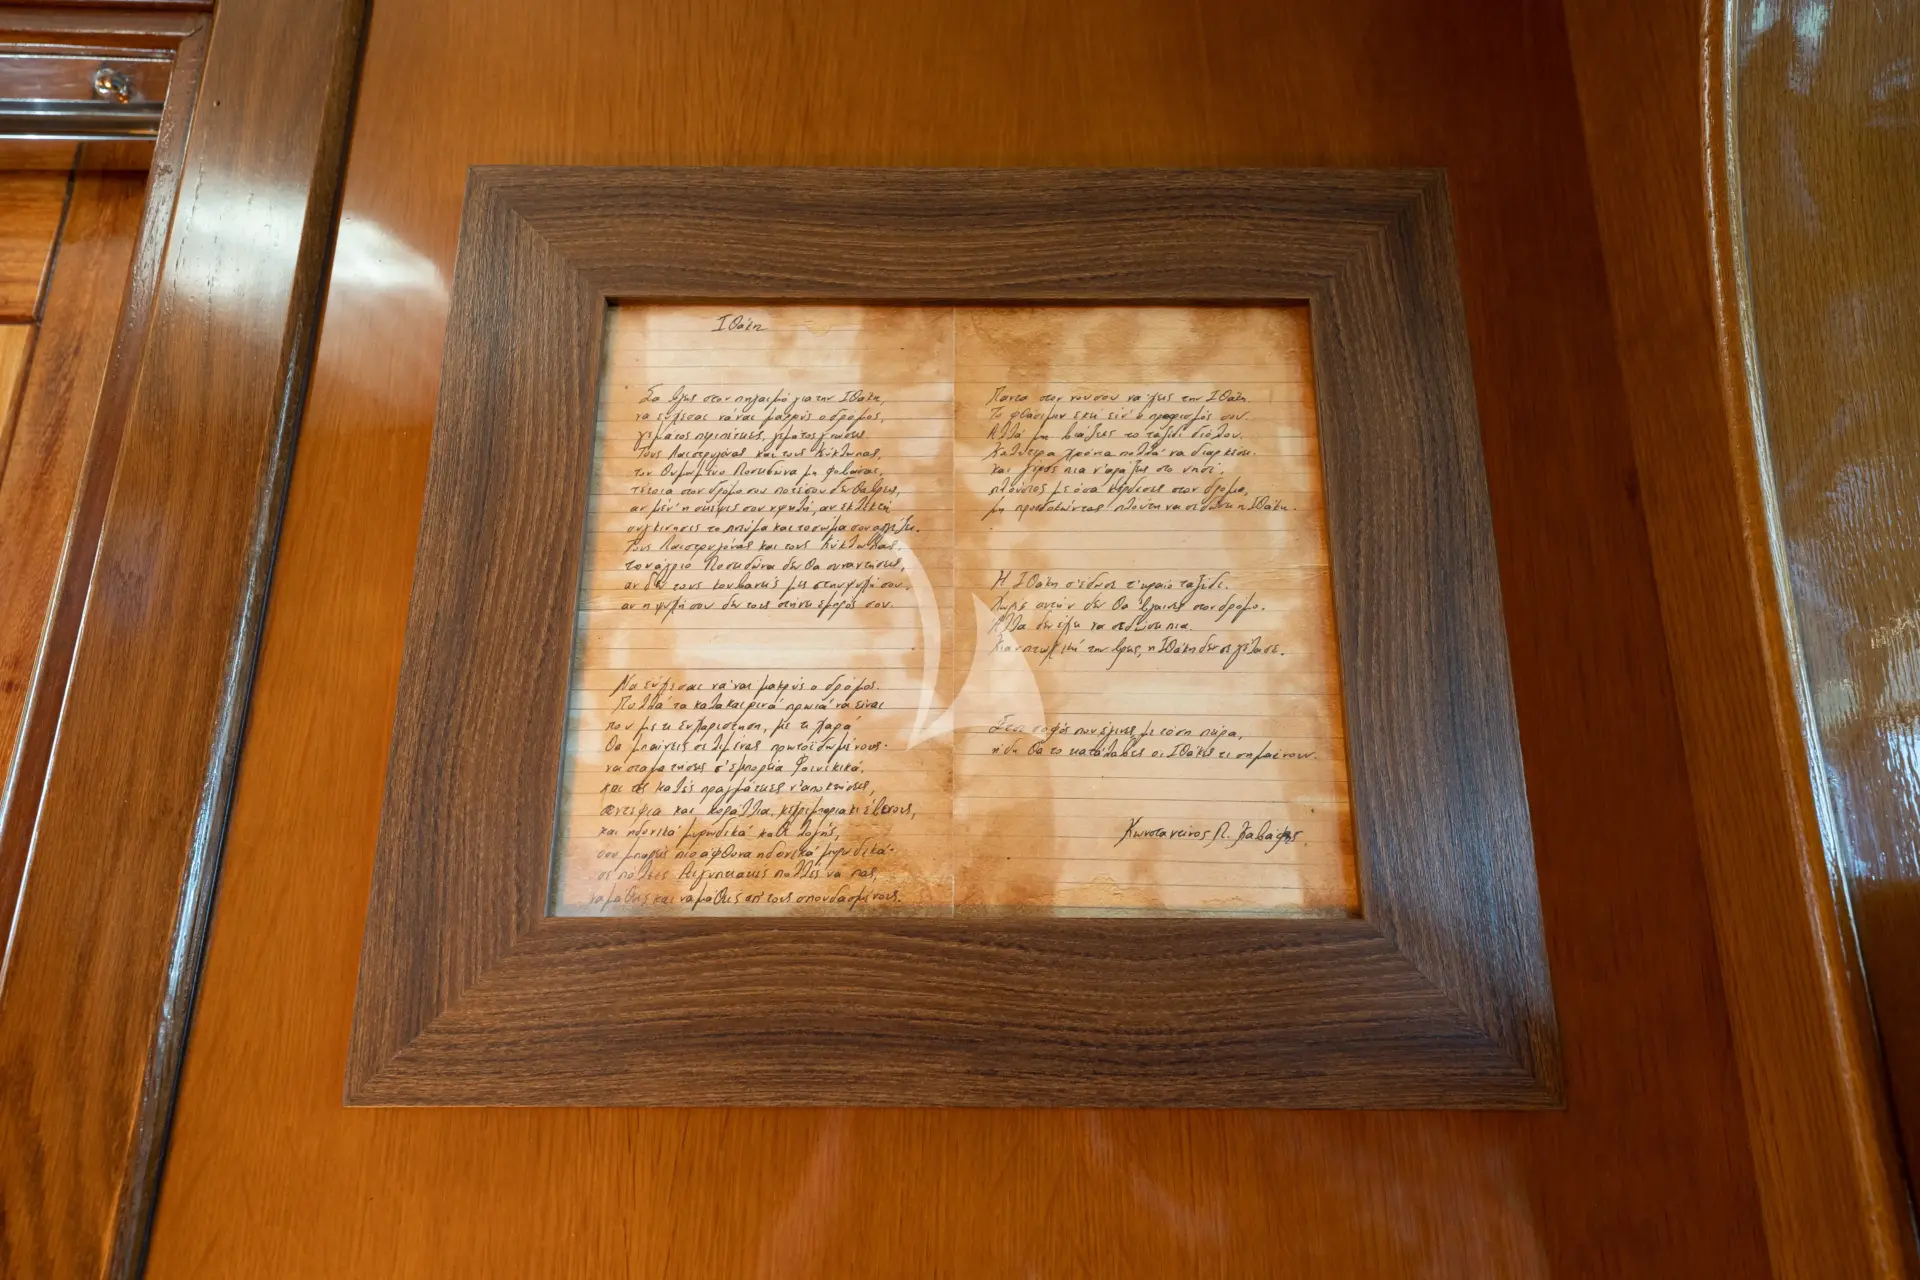 Ιθάκη
Σα βγεις στον πηγαιμό για την Ιθάκη,
να εύχεσαι νάναι μακρύς ο δρόμος,
γεμάτος περιπέτειες, γεμάτος γνώσεις.
Τους Λαιστρυγόνας και τους Κύκλωπας,
τον θυμωμένο Ποσειδώνα μη φοβάσαι,
τέτοια στον δρόμο σου ποτέ σου δεν θα βρεις,
αν μέν' η σκέψις σου υψηλή, αν εκλεκτή
συγκίνησις το πνεύμα και το σώμα σου αγγίζει.
Τους Λαιστρυγόνας και τους Κύκλωπας,
τον άγριο Ποσειδώνα δεν θα συναντήσεις,
αν δεν τους κουβανείς μες στην ψυχή σου,
αν η ψυχή σου δεν τους στήνει εμπρός σου.
Να εύχεσαι νάναι μακρύς ο δρόμος.
Πολλά τα καλοκαιρινά πρωιά να είναι
που με τι ευχαρίστηση, με τι χαρά
θα μπαίνεις σε λιμένας πρωτοϊδωμένους·
να σταματήσεις σ' εμπορεία Φοινικικά,
και τες καλές πραγμάτειες ν' αποκτήσεις,
σεντέφια και κοράλλια, κεχριμπάρια κι έβενους,
και ηδονικά μυρωδικά κάθε λογής,
όσο μπορείς πιο άφθονα ηδονικά μυρωδικά·
σε πόλεις Αιγυπτιακές πολλές να πας,
να μάθεις και να μάθεις απ' τους σπουδασμένους.
Πάντα στον νου σου νάχεις την Ιθάκη.
Το φθάσιμον εκεί είν' ο προορισμός σου.
Αλλά μη βιάζεις το ταξίδι διόλου.
Καλύτερα χρόνια πολλά να διαρκέσει·
και γέρος πια ν' αράξεις στο νησί,
πλούσιος με όσα κέρδισες στον δρόμο,
μη προσδοκώντας πλούτη να σε δώσει η Ιθάκη.
Η Ιθάκη σ' έδωσε τ' ωραίο ταξίδι.
Χωρίς αυτήν δεν θα 'βγαινες στον δρόμο.
Άλλα δεν έχει να σε δώσει πια.
Κι αν πτωχική την βρεις, η Ιθάκη δεν σε γέλασε.
Έτσι σοφός που έγινες, με τόση πείρα,
ήδη θα το κατάλαβες οι Ιθάκες τι σημαίνουν.
Κωνσταντίνος Π. Καβάφης